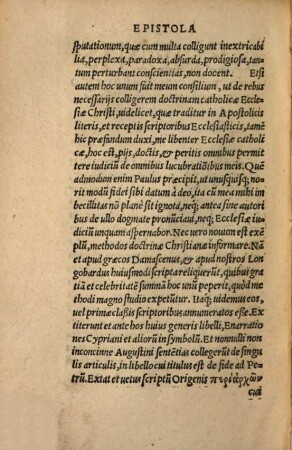 EPISTOLA
sputationum, quæ cum multa colligunt inextricabi
lia, perplexa, paradoxa, absurda, prodigiosa, tan-
tum perturbant conscientias, non docent. Est
autem hoc unum fuit meum consilium, ut de rebus
necessarijs colligerem doctrinam catholicæ Eccle
siæ Christi, uidelicet, quæ tradita in Apostolicis
literis, et receptis scriptoribus Ecclesiasticis, tamē
hic præfandum duxi, me libenter Ecclesiæ catholi
cæ, hoc est, pijs, doctis, & peritis omnibus permit
tere iudiciū de omnibus lucubratiōibus meis. Que
admodum enim Paulus præcipit, ut unusquisq; no
rit modū fidei sibi datum à deo, ita cū mea mihi im
becillitas nō planè sit ignota, neq; antea sine autori
bus de ullo dogmate pronūciaui, neq; Ecclesiæ iu-
dicium unquam aspernabor. Nec uero nouum est exē
plū, methodos doctrinæ Christianæ informare. Nā
et apud græcos Damascenus, & apud nostros Lon
gobardus huiusmodi scripta reliquerūt, quibus grā
tia et celebritatē summā hoc unū peperit, quòd me
thodi magno studio expetūtur. Itaq; uidemus eos,
uel primæ classis scriptoribus annumeratos esse. Ex
titerunt et ante hos huius generis libelli, Enarratio
nes Cypriani et aliorū in symbolū. Et nonnulli non
inconcinne Augustini sentētias collegerūt de singu
lis articulis, in libello cui titulus est de fide ad Pe-
trū. Extat et uetus scriptū Origenis περὶ ἀρχῶν
cui